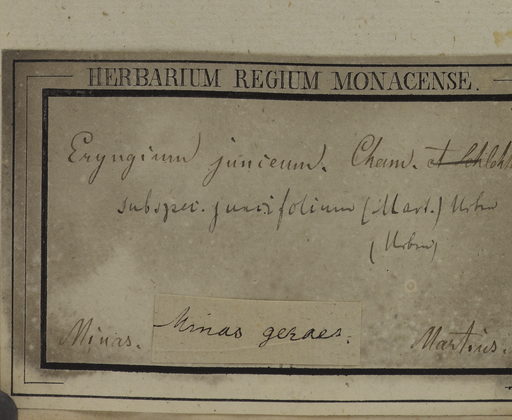 HERBARIUM REGIUM MONACENSE.
Eryngium junceum. Cham. et Schlcht
subspec. juncifolium (Mart.) Urban
(Urban)
Minas. Minas geraes. Martius.